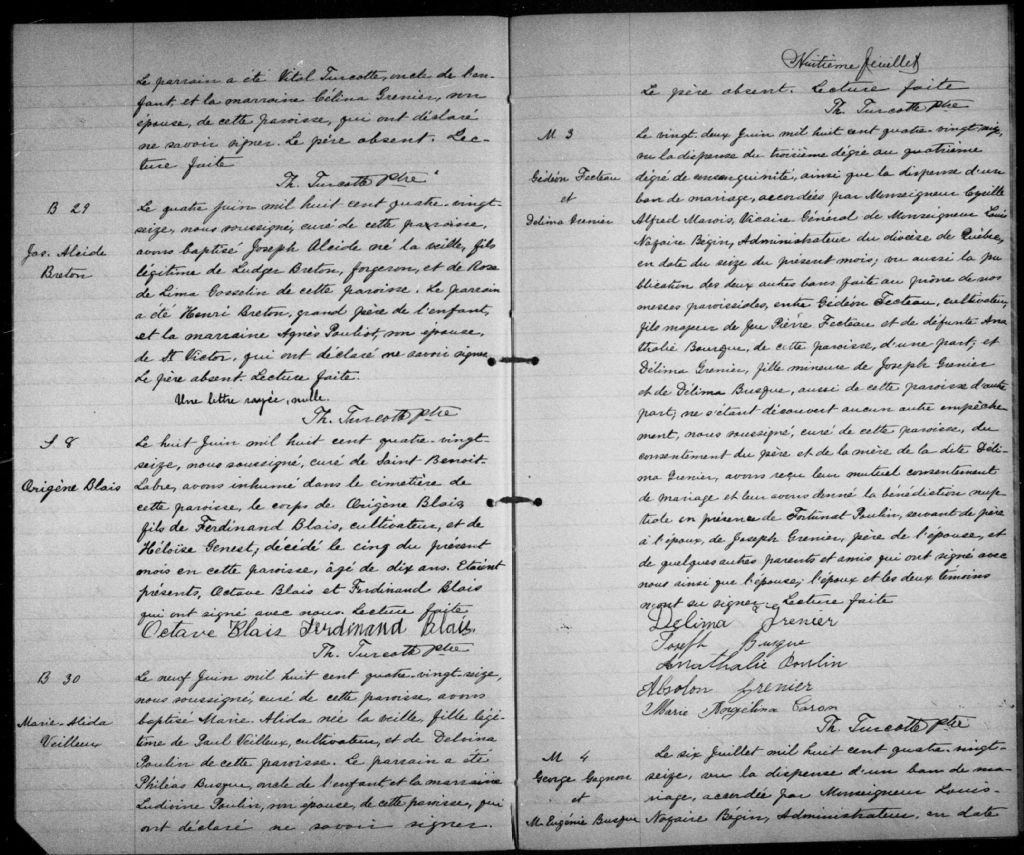 Le parrain a été Vital Turcotte, oncle de l'en-
fant, et la marraine Célina Grenier, son
épouse, de cette paroisse, qui ont déclaré
ne savoir signer. Le père absent. Lec-
ture faite
Th. Turcotte Ptre
B 29
Jos. Alcide
Breton
Le quatre juin mil huit cent quatre-vingt-
seize, nous soussigné, curé de cette paroisse,
avons baptisé Joseph Alcide né la veille, fils
légitime de Ludger Breton, forgeron, et de Rose
de Lima Gosselin de cette paroisse. Le parrain
a été Henri Breton, grand père de l'enfant,
et la marraine Agnès Pouliot, son épouse,
de St Victor, qui ont déclaré ne savoir signer
Le père absent. Lecture faite.
Une lettre rayée, nulle.
Th. Turcotte Ptre
S 8
Origène Blais
Le huit Juin mil huit cent quatre-vingt-
seize, nous soussigné, curé de Saint Benoit-
Labre, avons inhumé dans le cimetière de
cette paroisse, le corps de Origène Blais,
fils de Ferdinand Blais, cultivateur, et de
Héloïse Genest, décédé le cinq du présent
mois en cette paroisse, âgé de dix ans. Etaient
présents, Octave Blais et Ferdinand Blais
qui ont signé avec nous. Lecture faite
Octave Blais Ferdinand Blais.
Th. Turcotte Ptre
B 30
Marie-Alida
Veilleux
Le neuf Juin mil huit cent quatre-vingt-seize,
nous soussigné, curé de cette paroisse, avons
baptisé Marie-Alida née la veille, fille légi-
time de Paul Veilleux, cultivateur, et de Delvina
Poulin de cette paroisse. Le parrain a été
Philéas Busque, oncle de l'enfant, et la marraine
Ludivine Poulin, son épouse, de cette paroisse, qui
ont déclaré ne savoir signer.
Huitième feuillet
Le père absent. Lecture faite
Th. Turcotte Ptre
M 3
Gédéon Fecteau
et
Délima Grenier
Le vingt-deux Juin mil huit cent quatre-vingt-seize,
vu la dispense du troisième dégré au quatrième
dégré de consanguinité, ainsi que la dispense d'un
ban de mariage, accordées par Monseigneur Cyrille
Alfred Marois, Vicaire Général de Monseigneur Louis
Nazaire Bégin, Administrateur du diocèse de Québec,
en date du seize du présent mois; vu aussi la pu-
blication des deux autres bans faite au prône de nos
messes paroissiales, entre Gédéon Fecteau, cultivateur,
fils majeur de feu Pierre Fecteau et de défunte Ana-
thalie Bourque, de cette paroisse, d'une part; et
Délima Grenier, fille mineure de Joseph Grenier
et de Délima Busque, aussi de cette paroisse d'autre
part; ne s'étant découvert aucun autre empêche-
ment, nous soussigné, curé de cette paroisse, du
consentement du père et de la mère de la dite Déli-
ma Grenier, avons reçu leur mutuel consentement
de mariage et leur avons donné la bénédiction nup-
tiale en présence de Fortunat Poulin, servant de père
à l'époux, de Joseph Grenier, père de l'épouse, et
de quelques autres parents et amis qui ont signé avec
nous ainsi que l'épouse; l'époux et les deux témoins
n'ont su signer. Lecture faite
Délima Grenier
Joseph Busque
Anathalie Poulin
Absolon Grenier
Marie Angélina Caron
Th. Turcotte Ptre
M 4
George Gagnon
et
M. Eugénie Busque
Le six Juillet mil huit cent quatre-vingt-
seize, vu la dispense d'un ban de ma-
riage, accordée par Monseigneur Louis-
Nazaire Bégin, Administrateur, en date